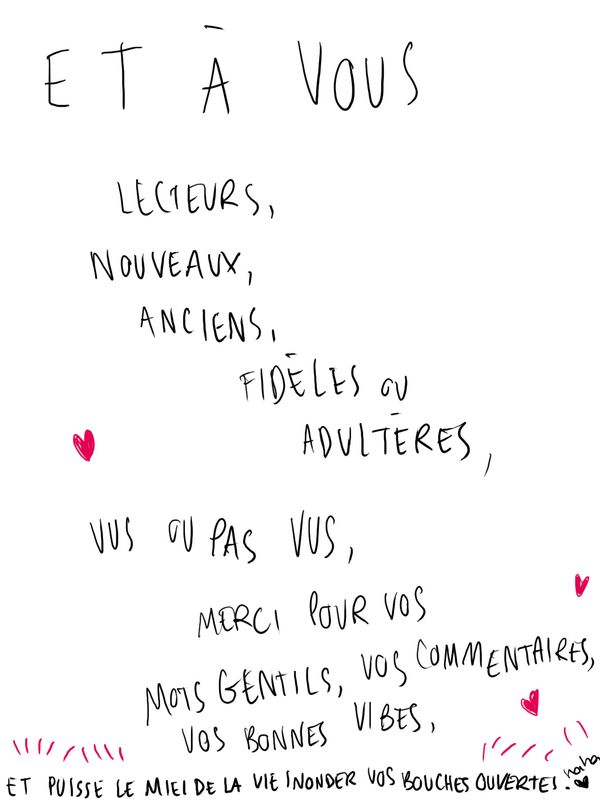 ET À VOUS
LECTEURS,
NOUVEAUX,
ANCIENS,
FIDÈLES OU
ADULTÈRES,
VUS OU PAS VUS,
MERCI POUR VOS
MOTS GENTILS, VOS COMMENTAIRES,
VOS BONNES VIBES,
ET PUISSE LE MIEL DE LA VIE INONDER VOS BOUCHES OUVERTES.
haha